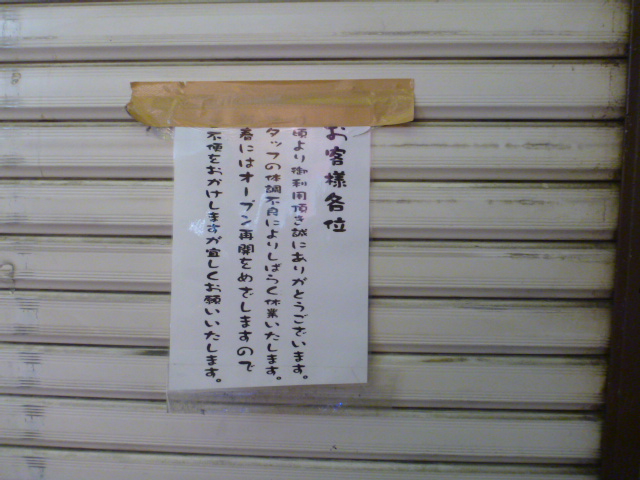 お客様各位
頃より御利用頂き誠にありがとうございます。
タッフの体調不良によりしばらく休業いたします。
春にはオープン再開をめざしますので
不便をおかけしますが宜しくお願いいたします。